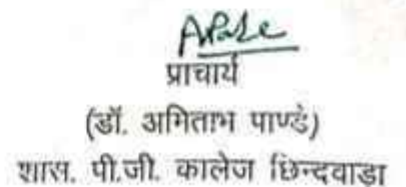 प्राचार्य
(डॉ. अमिताभ पाण्डे)
शास. पी.जी. कालेज छिन्दवाडा